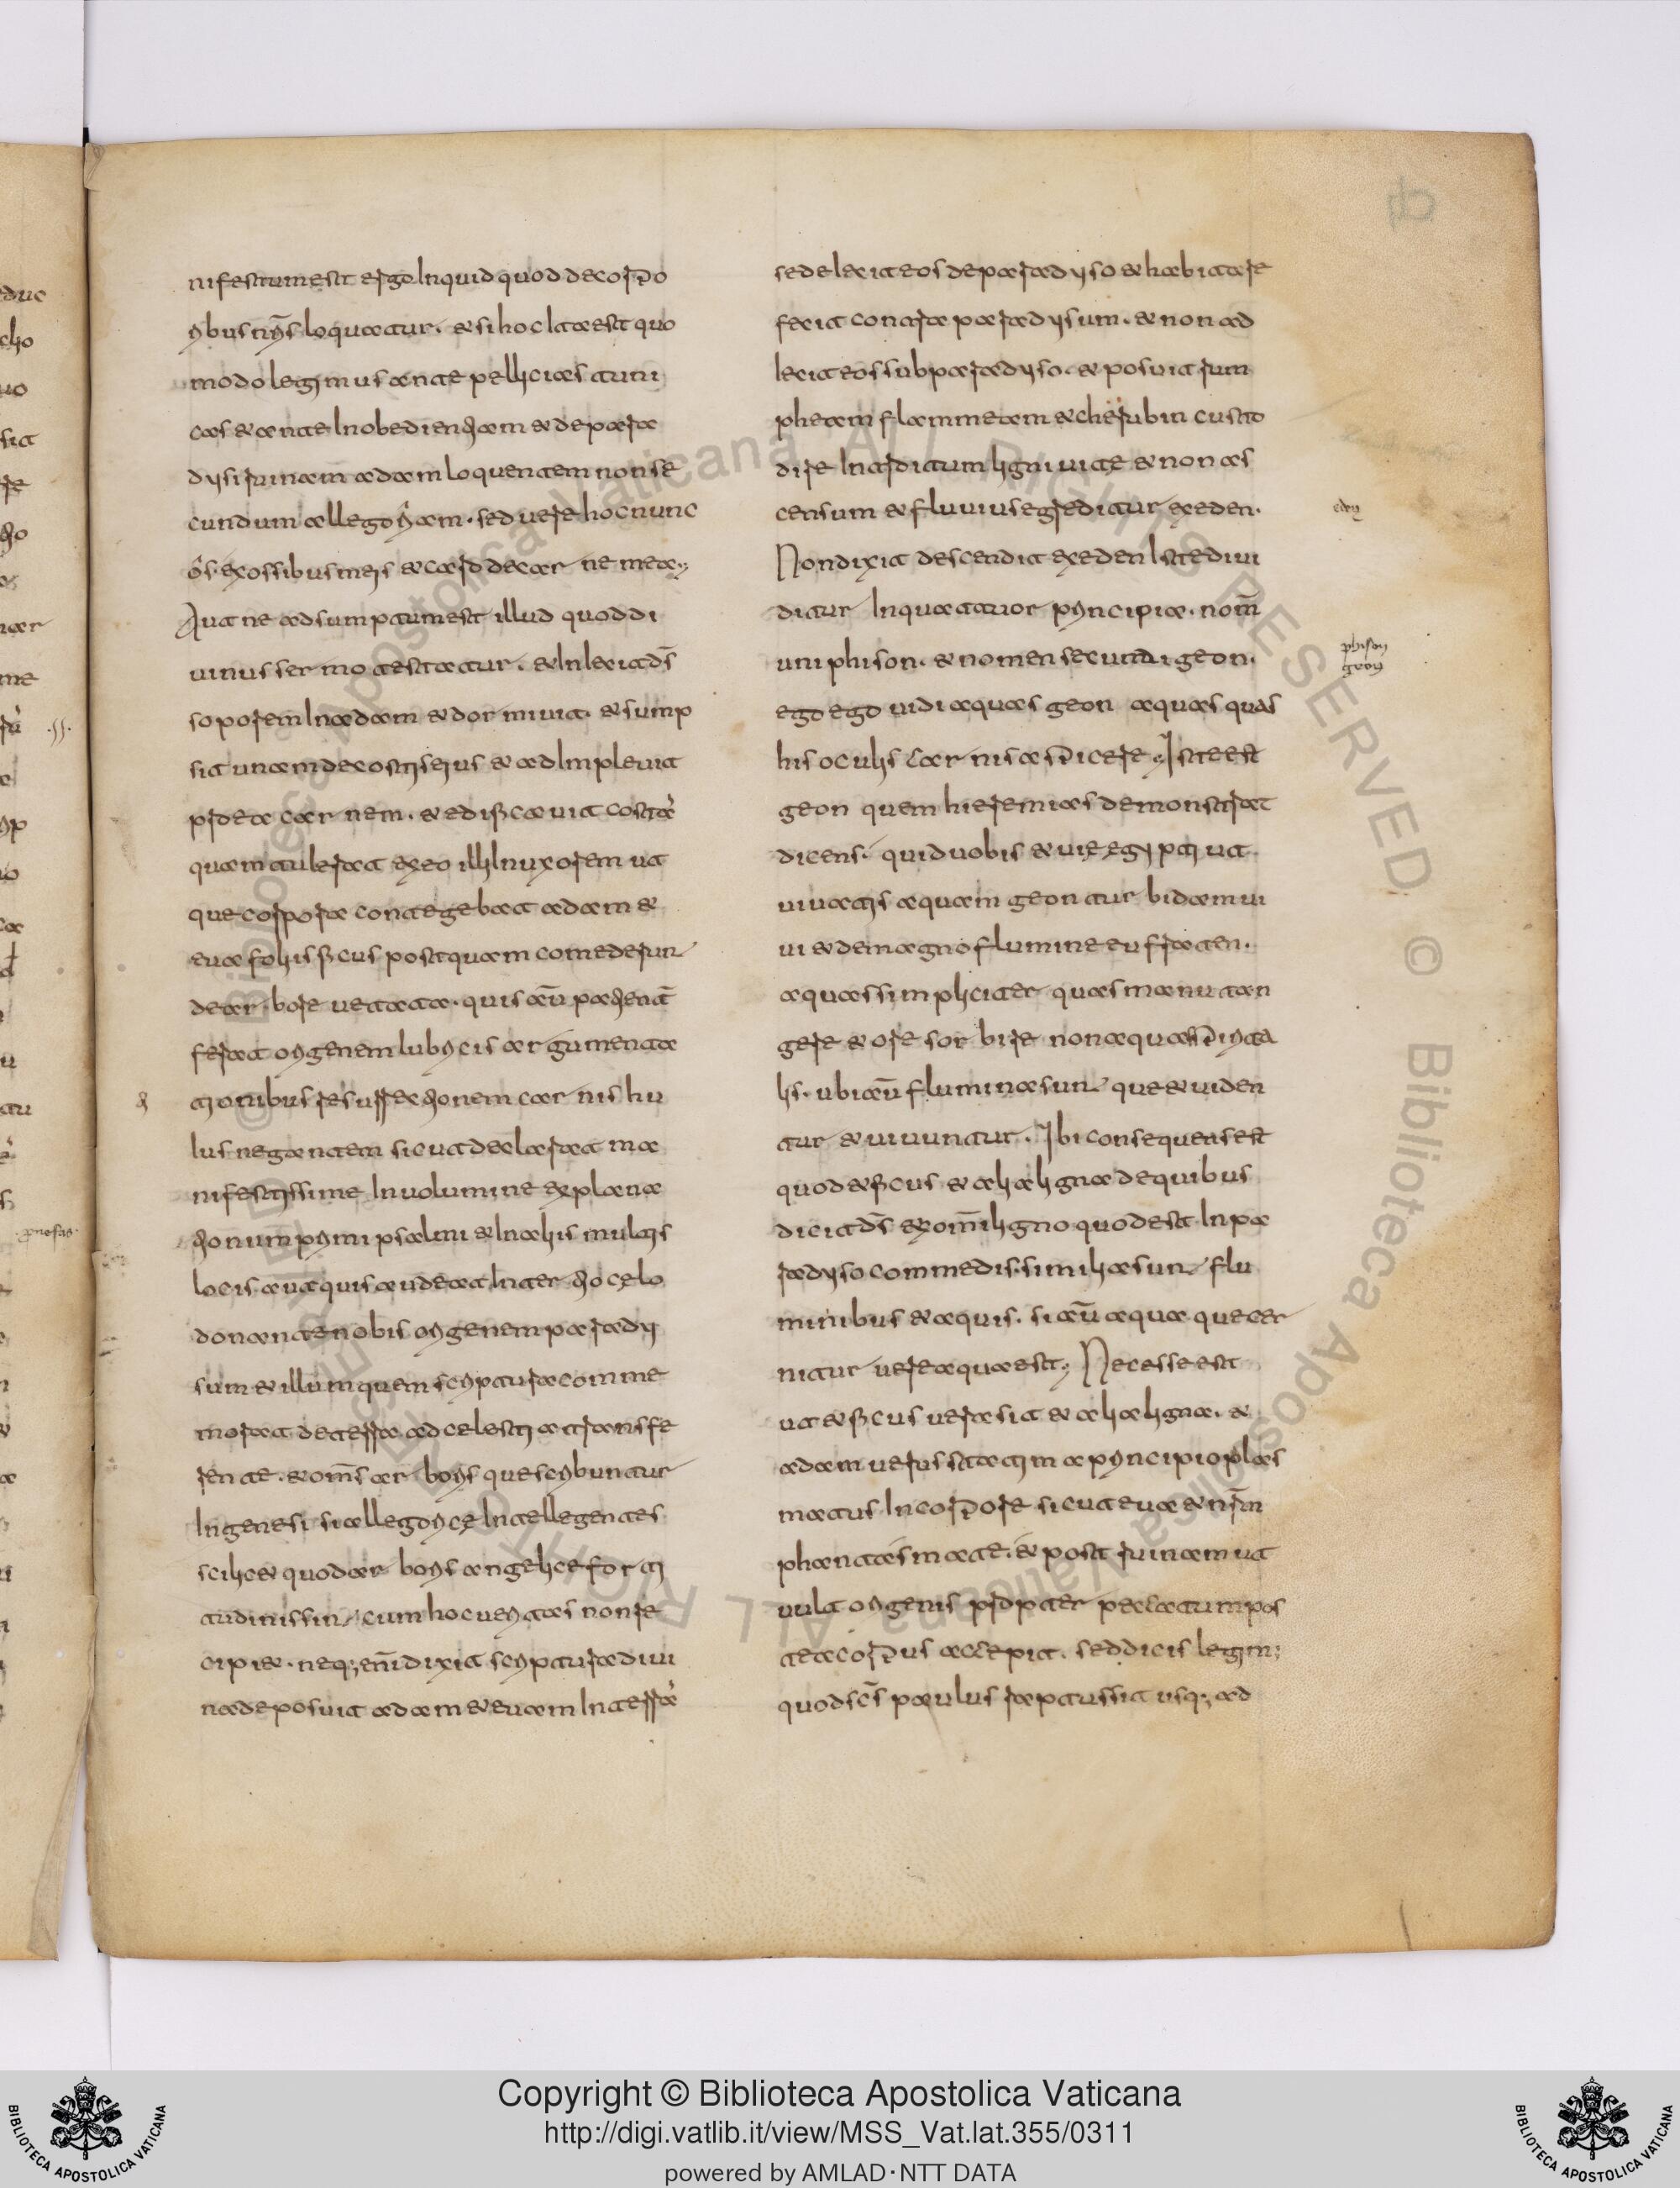 nifestum est ergo inquid quod de corpo
ribus nr̄is loquatur. et si hoc ita est quo
modo legimus ante pellicias tuni
cas et ante inobedientiam et de para
dysi ruinam adam loquentem non se
cundum allegoriam. sed vere hoc nunc
os ex ossibus meis et caro de carne mea;
Aut ne adsumptum est illud quod di
uinus sermo testatur. et iniecit d̄s
soporem in adam et dormiuit. et sump
sit unam de costis eius et adimpleuit
pro ea carnem. et edificauit costā
quam tulerat ex eo illi in uxorem ut
que corpora contegebat adam et
eua foliis ficus postquam comederunt
de arbore uetata. quis aūt patienT̄
ferat origenem lubricis argumenta
tionibus resurrectionem carnis hu
ius negantem sicut declarat ma
nifestissime in uolumine explana
tionum primi psalmi et in aliis multis
locis aut quis audeat inter tio celo
donante nobis origenem parady
sum et illum quem scriptura comme
morat de terra ad celestia transfe
rente. et om̄s arboris que scribuntur
in genesi si allegorice intellegentes
scilicet quod arboris angelice forti
tudinis sint cum hoc ueritas non re
cipiet. neq; enī dixit scriptura diui
na deposuit adam et euam in terrā
sed eiecit eos de paradyso et habitare
fecit contra paradysum. et non ad
iecit eos sub paradyso. et posuit rum
pheam flammeam et cherubin custo
dire introitum ligni uite et non as
censum et fluuius egreditur ex eden.
Non dixit descendit ex eden iste diui
ditur in quattuor principia. nom̄
uni phison. et nomen secundi geon.
ego ego uidi aquas geon aquas quas
his oculis carnis aspicere; Iste est
geon quem hieremias demonstrat
dicens. quid uobis et uie egypti ut
uiuatis aquam geon turbidam ui
ui et de magno flumine eufraten.
aquas simpliciter quas manu tan
gere et ore sorbire non aquas sp̄irita
lis. ubi aūt flumina sunt que et uiden
tur et uiuuntur. Ibi consequens est
quod et ficus et alia ligna de quibus
dicit d̄s ex om̄i ligno quod est in pa
radyso commedis. similia sunt flu
minibus et aquis. si aūt aqua que cer
nitur uere aqua est; Necesse est
ut et ficus uera sit et alia ligna. et
adam uerus statim a principio plas
matus in corpore sicut eua et nr̄m
phantasmate. et post ruinam ut
uult origenis propter peccatum pos
tea corpus accepit. sed dicis legim;
quod sc̄s paulus raptus sit usq; ad
eden
phison
geon
Copyright © Biblioteca Apostolica Vaticana
http://digi.vatlib.it/view/MSS_Vat.lat.355/0311
powered by AMLAD·NTT DATA